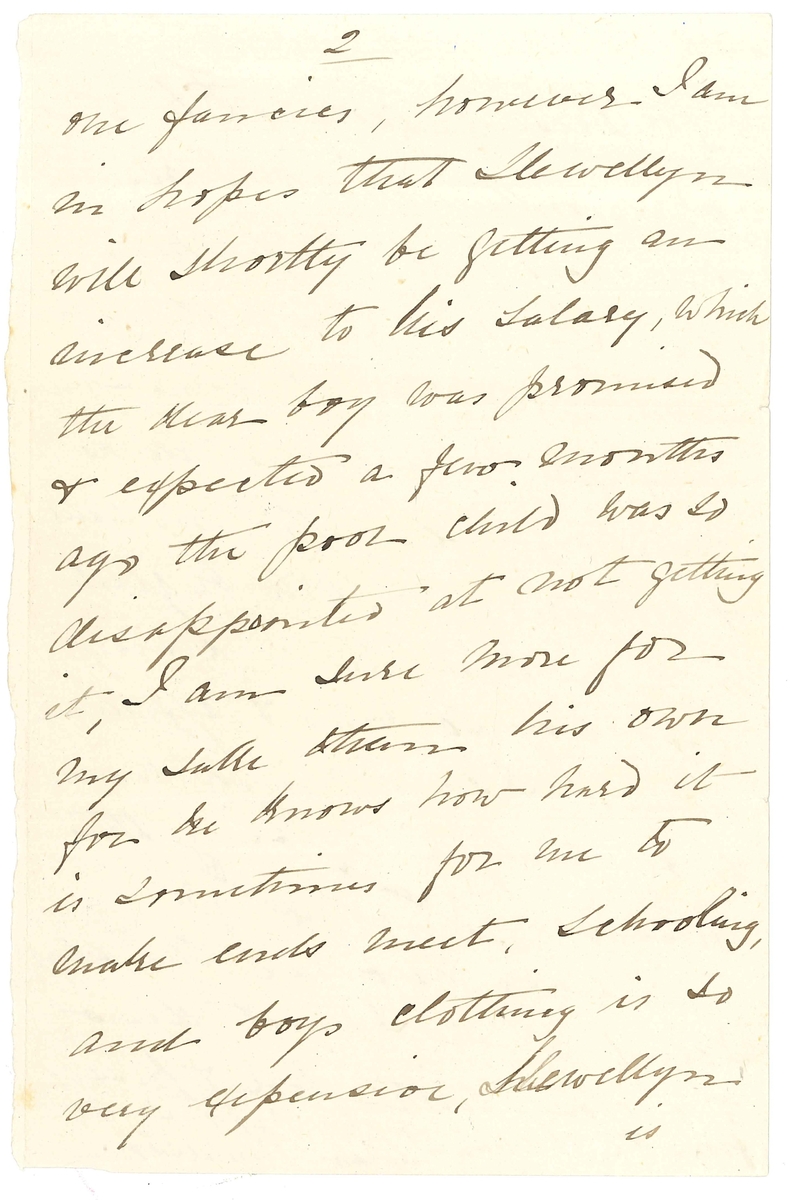 2
one fancies, however I am
in hopes that Llewellyn
will shortly be getting an
increase to his salary, which
the dear boy was promised
& expected a few months
ago the poor child was so
disappointed at not getting
it, I am sure more for
my sake than his own
for he knows how hard it
is sometimes for me to
make ends meet, schooling,
and boys clothing is so
very expensive, Llewellyn
is